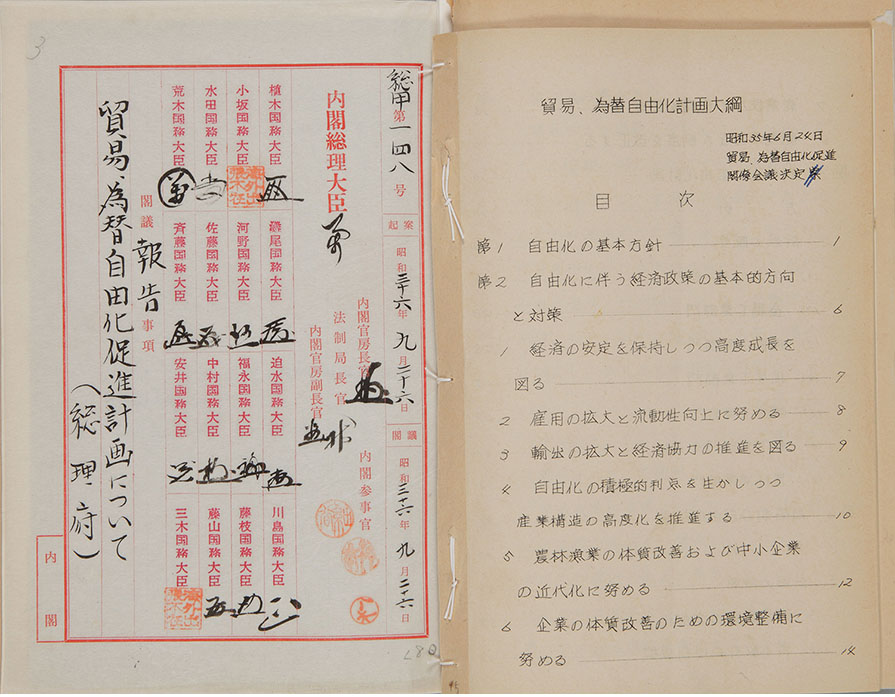 3
総甲第一四八号
起案 昭和三十六年九月二十六日
閣議 昭和三十六年九月二十六日
内閣総理大臣
内閣官房長官
法制局長官
内閣官房副長官
内閣参事官
植木国務大臣
小坂国務大臣
水田国務大臣
荒木国務大臣
灘尾国務大臣
河野国務大臣
佐藤国務大臣
斉藤国務大臣
迫水国務大臣
福永国務大臣
中村国務大臣
安井国務大臣
川島国務大臣
藤枝国務大臣
藤山国務大臣
三木国務大臣
海外出張不在
海外出張不在
閣議報告事項
貿易、為替自由化促進計画について
（総理府）
内閣
280
貿易、為替自由化計画大綱
昭和35年6月24日
貿易、為替自由化促進
閣僚会議決定
目 次
第1 自由化の基本方針 1
第2 自由化に伴う経済政策の基本的方向
と対策 6
1 経済の安定を保持しつつ高度成長を
図る 7
2 雇用の拡大と流動性向上に努める 8
3 輸出の拡大と経済協力の推進を図る 9
4 自由化の積極的利点を生かしつつ
産業構造の高度化を推進する 10
5 農林漁業の体質改善および中小企業
の近代化に努める 12
6 企業の体質改善のための環境整備に
努める 14